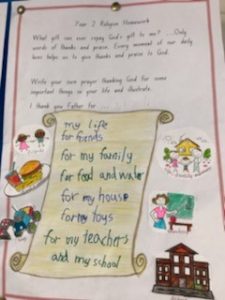 Year 2 Religion Homework
What gift can ever repay God's gift to me? ...Only
words of thanks and praise. Every moment of our daily
lives helps us to give thanks and praise to God.
Write your own prayer thanking God for some
important things in your life and illustrate.
I thank you Father for ...
my life
for friends
for my family
for food and water
for my house
for my toys
for my teachers
and my school
family